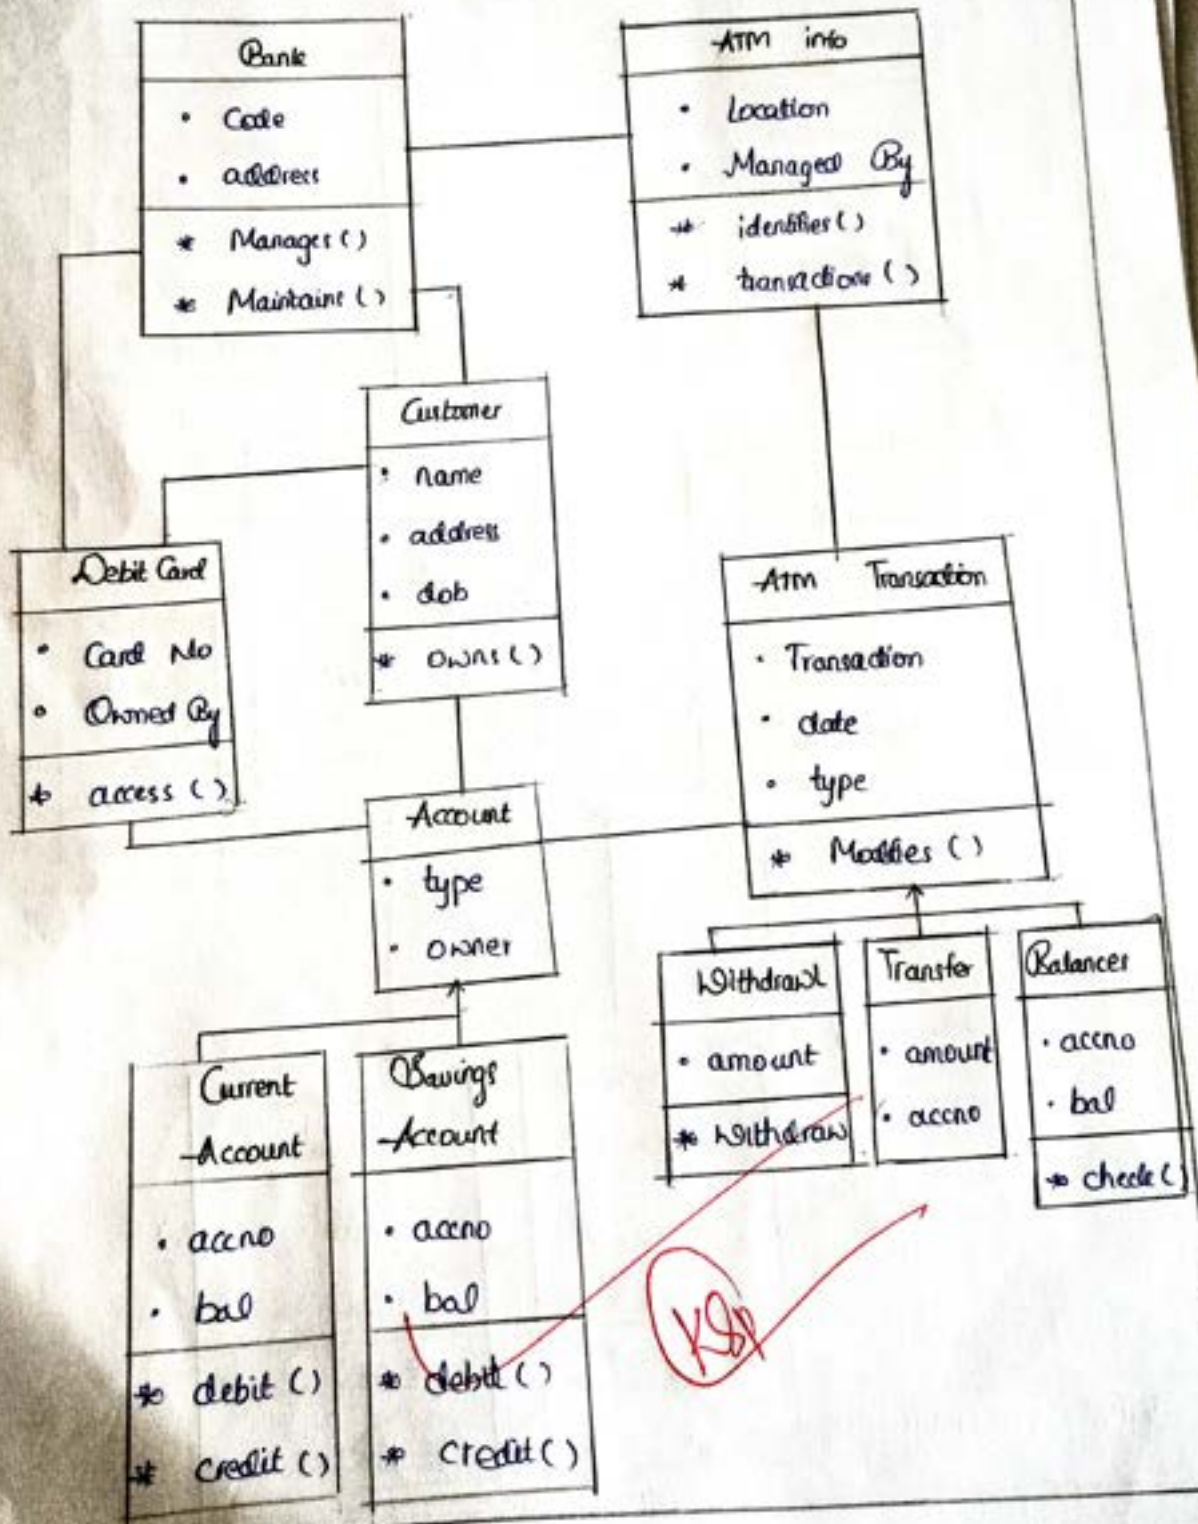 Bank
• Code
• address
* Manages ( )
* Maintains ( )
ATM info
• Location
• Managed By
* identifies ( )
* transactions ( )
Customer
• name
• address
• dob
* owns ( )
Debit Card
• Card No
• Owned By
* access ( )
ATM Transaction
• Transaction
• date
• type
* Modifies ( )
Account
• type
• owner
Withdrawl
• amount
* Withdraw
Transfer
• amount
• accno
Balances
• accno
• bal
* check ( )
Current
Account
• accno
• bal
* debit ( )
* credit ( )
Savings
Account
• accno
• bal
* debit ( )
* credit ( )